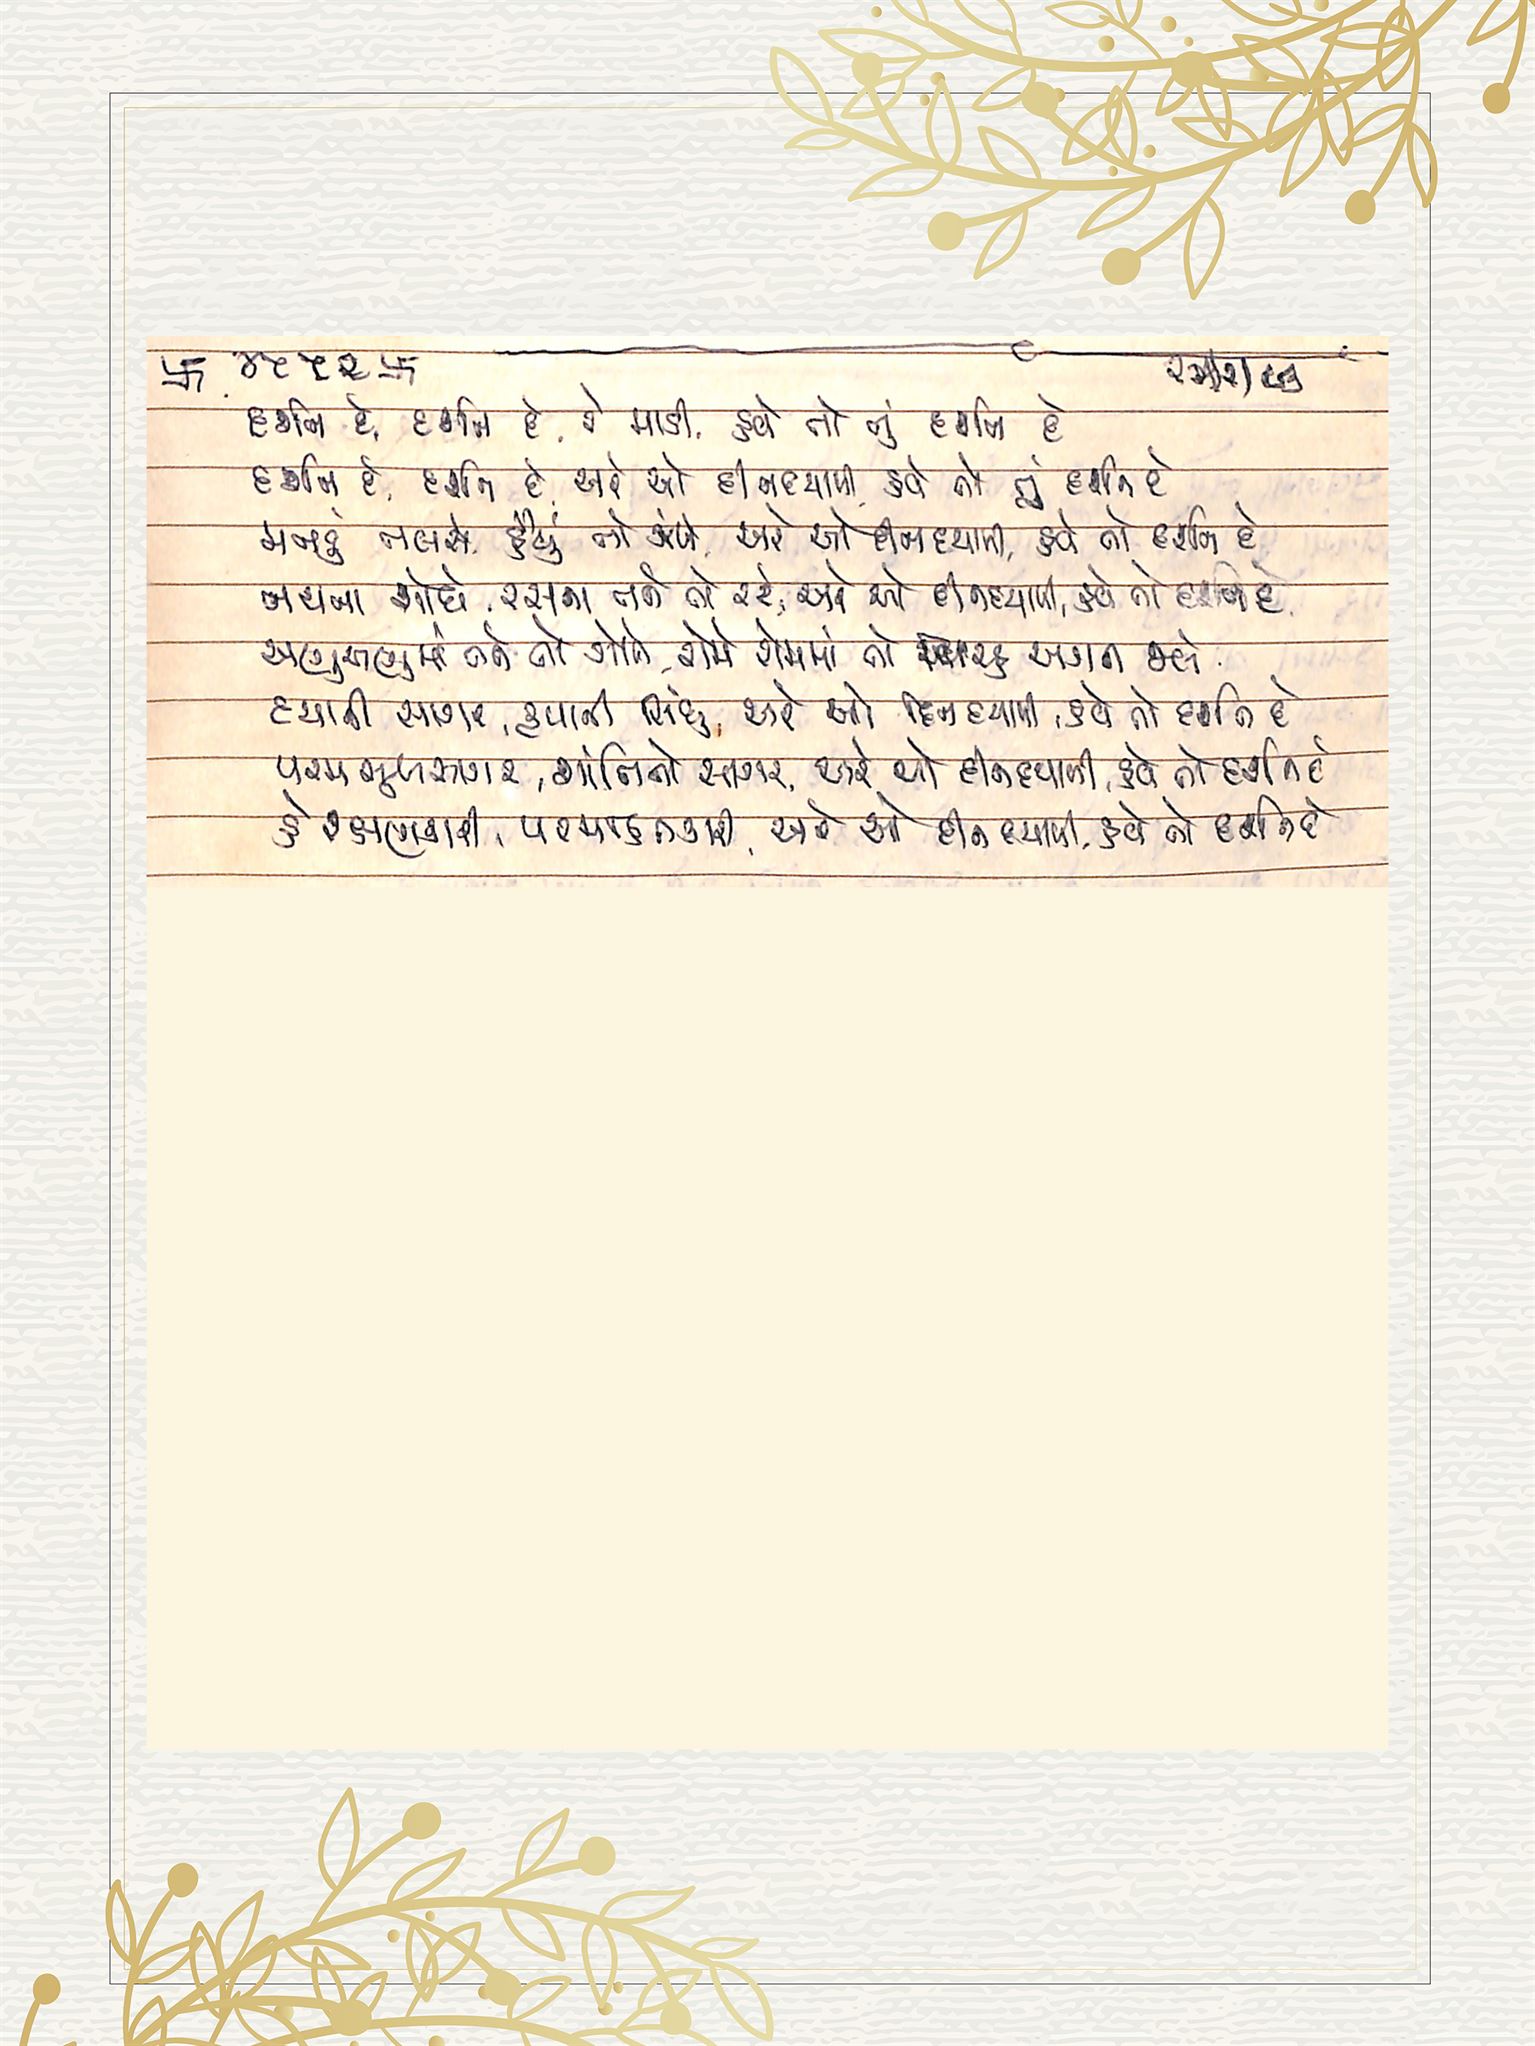 卐 ૪૮૬૨ 卐
દર્શન દે, દર્શન દે, રે માડી, હવે તો તું દર્શન દે
દર્શન દે, દર્શન દે, અરે ઓ દીનદયાળી, હવે તો તું દર્શન દે
મનડું તલસે, હૈયું તો ઝંખે, અરે ઓ દીનદયાળી, હવે તો દર્શન દે
નયના શોધે, રસના તને તો રટે, અરે ઓ દીનદયાળી, હવે તો દર્શન દે
અણુઅણુમાં તને તો ગોતે, રોમે રોમમાં તો અગન જલે
દયાની સાગર, કૃપાની સિંધુ, અરે ઓ દિનદયાળી, હવે તો દર્શન દે
પરમ સુખસાગર, શાંતિનો સાગર, અરે ઓ દીનદયાળી, હવે તો દર્શન દે
હે રક્ષણકારી, અરે ઓ દીનદયાળી, હવે તો દર્શન દે